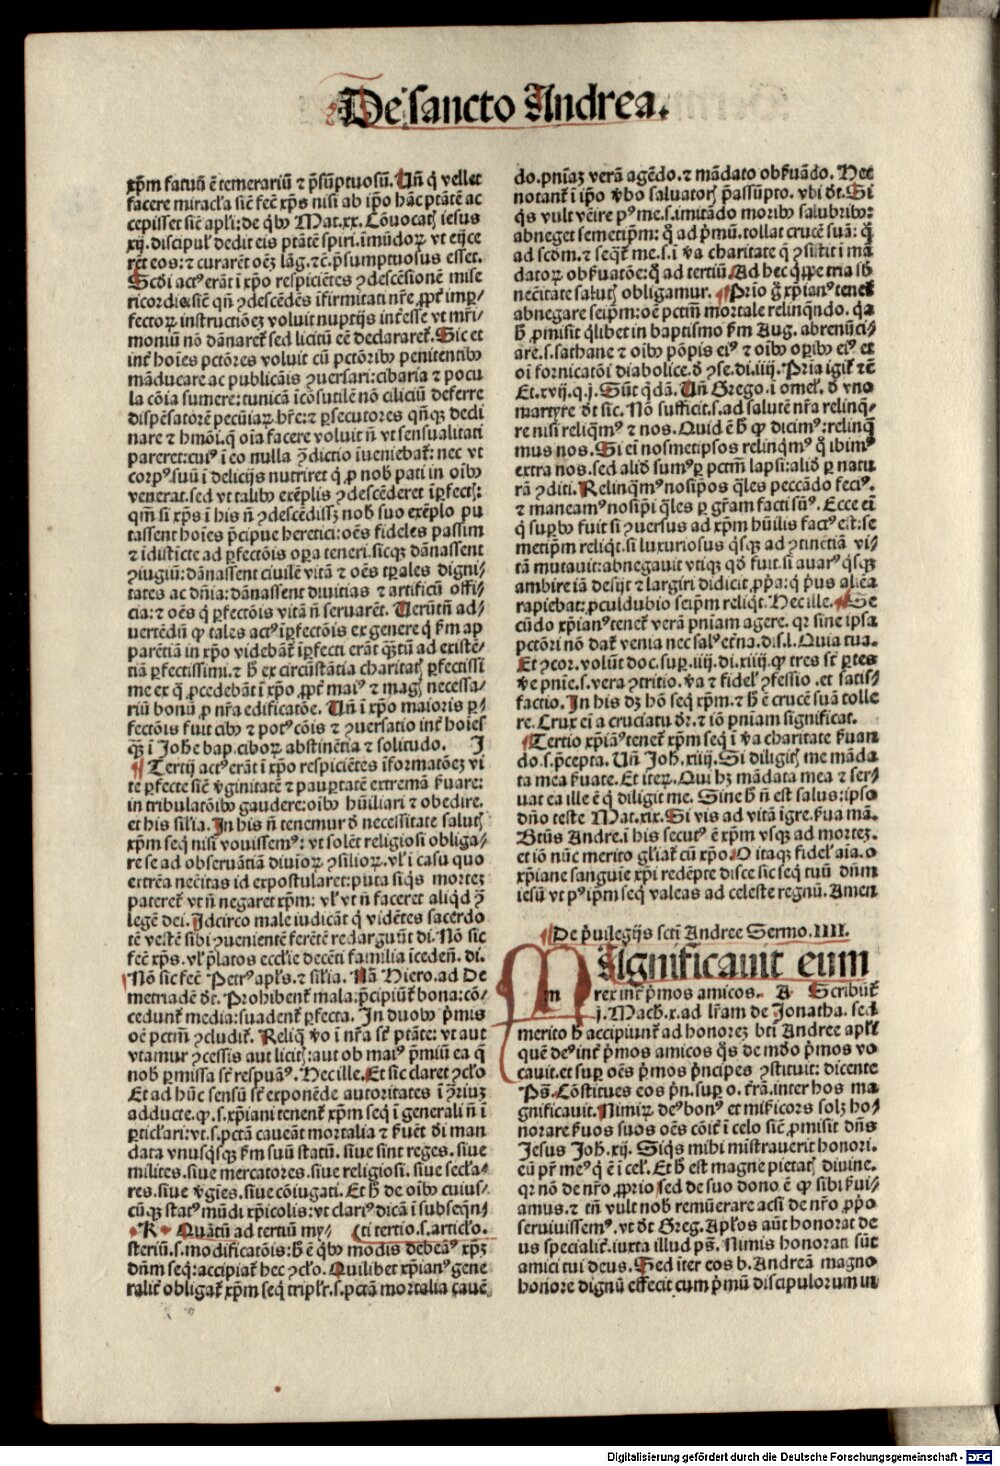 De sancto Andrea.
xp̄m fatuū ē temerariū ⁊ p̄sūptuosū. Un̄ q̇ vellet
facere miracl'a sic̄ fec̄ xp̄s nisi ab ip̄o hāc ptātē ac
cepisset sic̄ apl'i: de q̇bꝰ Mat.xx. Cōuocatꝭ iesus
xij. discipul' dedit eis ptātē spiri. īmūdoꝝ vt eijce
rēt eos: ⁊ curarēt oēꝫ lāg. ⁊c̄. p̄sumptuosus esset.
Scd̄i actꝰ erāt ī xp̄o respiciētes ꝯdescēsionē mise
ricordie sic̄ qn̄ ꝯdescēdēs īfirmitati nr̄e ꝓpt̄ imp̄/
fectoꝝ instructiōeꝫ voluit nuptijs int̄esse vt mr̄i/
moniū nō dānaret' sed licitū eē declararet'. Sic et
int̄ hoīes pctōres voluit cū pctōribꝰ penitentibꝰ
māducare ac publicāis ꝯuersari: cibaria ⁊ pocu
la cōia sumere: tunicā īcōsutilē nō ciliciū deferre
dispēsatorē pecūiaꝝ hr̄e: ⁊ ꝑsecutores qn̄qꝫ decli
nare ⁊ hmōi. q̄ oīa facere voluit n̄ vt sensualitati
pareret: cuiꝰ ī eo nulla ꝯ̄dictio īueniebat': nec vt
corpꝰ suū ī delicijs nutriret q̇ ꝓ nob̄ pati in oībꝰ
venerat. sed vt talibꝰ exēplis ꝯdescēderet īꝑfectꝭ:
qm̄ si xp̄s ī his n̄ ꝯdescēdissꝫ nob̄ suo exēplo pu
tassent hoīes p̄cipue heretici: oēs fideles passim
⁊ īdistīcte ad ꝑfectōis oꝑa teneri. sicqꝫ dānassent
ꝯiugiū: dānassent ciuilē vitā ⁊ oēs tꝑales digni/
tates ac dn̄ia: dānassent diuitias ⁊ artificū offi/
cia: ⁊ oēs q̇ ꝑfectōis vitā n̄ seruarēt. Uerūtn̄ ad/
uertēdū ꝙ tales actꝰ īꝑfectōis ex genere q̇ fm̄ ap
parētiā in xp̄o videbāt' īꝑfecti erāt q̄ꝫtū ad existē/
tiā ꝑfectissimi. ⁊ h̄ ex circūstātia charitatꝭ ꝑfectissi
me ex q̄ ꝓcedebāt ī xp̄o ꝓpt̄ maiꝰ ⁊ magꝭ necessa/
riū bonū ꝓ nr̄a edificatōe. Un̄ ī xp̄o maioris ꝑ/
fectōis fuit cibꝰ ⁊ potꝰ cōis ⁊ ꝯuersatio int̄ hoīes
q̄ꝫ ī Joh̄e bap. ciboꝝ abstinētia ⁊ solitudo. J
¶ Tertij actꝰ erāt ī xp̄o respiciētes īformatōeꝫ vi
te ꝑfecte sic̄ v̄ginitatē ⁊ pauꝑtatē extremā ẜuare:
in tribulatōibꝰ gaudere: oībꝰ hūiliari ⁊ obedire.
et his sil'ia. In his n̄ tenemur d̄ necessitate salutꝭ
xp̄m seq̇ nisi vouissemꝰ: vt solēt religiosi obliga/
re se ad obseruātiā diuioꝝ ꝯsilioꝝ. vl' ī casu quo
extrēa necītas id expostularet: puta siq̇s morteꝫ
pateret' vt n̄ negaret xp̄m: vl' vt n̄ faceret aliqd ꝯ̄
legē dei. Idcirco male iudicāt q̇ vidētes sacerdo
tē vestē sibi ꝯuenientē ferētē redargunt di. Nō sic
fec̄ xp̄s. vl' p̄latos ecclīe decēti familia īcedē. di.
Nō sic fec̄ Petrꝰ apl's. ⁊ sil'ia. Nā Hiero. ad De
metriadē dt̄. Prohibent' mala: p̄cipiūt' bona: cō/
cedunt' media: suadent' ꝑfecta. In duobꝰ p̄mis
oē pctm̄ ꝯcludit'. Reliq̄ v̄o ī nr̄a st̄ ptāte: vt aut
vtamur ꝯcessis aut licitꝭ: aut ob maiꝰ p̄miū ea q̄
nob̄ ꝑmissa st̄ respuāꝰ. Hec ille. Et sic̄ claret ꝯcl'o
Et ad hūc sensū st̄ exponēde autoritates ī ꝯ̄riuꝫ
adducte. ꝙ.s. xp̄iani tenent' xp̄m seq̇ ī generali n̄ ī
ꝑticl'ari: vt.s. pctā caueāt mortalia ⁊ ẜuēt di man
data vnusq̇sqꝫ fm̄ suū statū. siue sint reges. siue
milites. siue mercatores. siue religiosi. siue secl'a/
res. siue v̄gīes. siue cōiugati. Et h̄ de oībꝰ cuius/
cūqꝫ statꝰ mūdi xp̄icolis: vt clariꝰ dicā ī subseqn̄/
K Quātū ad tertiū my/ (ti tertio.s. articl'o.
steriū.s. modificatōis: h̄ ē q̇bꝰ modis debeāꝰ xp̄ꝫ
dn̄m seq̇: accipiat' hec ꝯcl'o. Quilibet xp̄ianꝰ gene
ralit̄ obligat' xp̄m seq̇ tripl'r.s. pctā mortalia cauē
do. pn̄iaꝫ verā agēdo. ⁊ mādato obẜuādo. Hec
notant' ī ip̄o v̄bo saluatorꝭ p̄assūpto. vbi dt̄. Si
q̇s vult veīre pꝰ me.s. imitādo moribꝰ salubribꝰ:
abneget semetip̄m: q̊ ad p̄mū. tollat crucē suā: q̊
ad scd̄m. ⁊ seqt' me.s. ī v̄a charitate q̄ ꝯsistit ī mā
datoꝝ obẜuatōe: q̊ ad tertiū. Ad hec q̇ppe tria sb̄
necītate salutꝭ obligamur. ¶ Prio g̊ xp̄ianꝰ tenet'
abnegare seip̄m: oē pctm̄ mortale relinqn̄do. qa
h̄ ꝓmisit q̇libet in baptismo fm̄ Aug. abrenūci/
are.s. sathane ⁊ oībꝰ pōpis eiꝰ ⁊ oībꝰ oꝑibꝰ eiꝰ et
oī fornicatōi diabolice. d̄ ꝯse. di. iiij. Pria igit' ⁊c̄
Et. xvij. q. j. Sūt qdā. Un̄ Grego. ī omel'. d̄ vno
martyre dt̄ sic. Nō sufficit.s. ad salutē nr̄a relinq̄/
re nisi reliqmꝰ ⁊ nos. Quid ē h̄ ꝙ dicimꝰ: relinq̇
mus nos. Si eī nosmetipsos relinqmꝰ q̊ ibimꝰ
extra nos. sed aliđ sumꝰ ꝑ pctm̄ lapsi: aliđ ꝑ natu
rā ꝯditi. Relinqmꝰ nosip̄os q̄les peccādo fecīꝰ.
⁊ maneamꝰ nosip̄i q̄les ꝑ gr̄am facti sūꝰ. Ecce eī
q̇ suꝑbꝰ fuit si ꝯuersus ad xp̄m hūilis factꝰ est: se
metip̄m reliqt. si luxuriosus q̇sqꝫ ad ꝯtinētiā vi/
tā mutauit: abnegauit vtiqꝫ qđ fuit. si auarꝰ q̇sqꝫ
ambire iā desijt ⁊ largiri didicit ꝓp̄a: q̇ p̄us aliēa
rapiebat: ꝓculdubio seip̄m reliqt. Hec ille. ¶ Se
cūdo xp̄ianꝰ tenet' verā pn̄iam agere. qr sine ipsa
pctōri nō dat' venia nec salꝰ et̄na. di. l. Quia tua.
Et ꝯcor. volūt doc. suꝑ. iiij. di. xiiij. ꝙ tres st̄ ꝑtes
v̄e pn̄ie.s. vera ꝯtritio. v̄a ⁊ fidel' ꝯfessio. et satis/
factio. In his dꝫ hō seq̇ xp̄m. ⁊ h̄ ē crucē suā tolle
re. Crux eī a cruciatu dr̄. ⁊ iō pn̄iam significat.
¶ Tertio xp̄iāꝰ tenet' xp̄m seq̇ ī v̄a charitate ẜuan
do.s. p̄cepta. Un̄ Joh. xiiij. Si diligitꝭ me māda
ta mea ẜuate. Et iteꝝ. Qui hꝫ mādata mea ⁊ ser/
uat ea ille ē q̇ diligit me. Sine h̄ n̄ est salus: ipso
dn̄o teste Mat. xix. Si vis ad vitā īgre. ẜua mā.
Btūs Andre. ī his secutꝰ ē xp̄m vsqꝫ ad morteꝫ.
et iō nūc merito gl'iat' cū xp̄o. O itaqꝫ fidel' aīa. o
xp̄iane sanguīe xp̄i redēpte disce sic seq̇ tuū dn̄m
iesū vt pꝰ ip̄m seq̇ valeas ad celeste regnū. Amen
¶ De p̄uilegijs scti Andree Sermo. IIII.
MAgnificauit eum
rex int̄ p̄mos amicos. A Scribūt'
j. Mach. x. ad lr̄am de Jonatha. sed
merito h̄ accipiunt' ad honoreꝫ bti Andree apl'i
quē deꝰ int̄ p̄mos amicos q̊s de mūdo p̄mos vo
cauit. et suꝑ oēs p̄mos p̄ncipes ꝯstituit: dicente
Ps̄. Cōstitues eos p̄n. suꝑ o. t̄rā. inter hos ma
gnificauit. Nimiꝝ deꝰ bonꝰ et mi'cors solꝫ ho/
norare ẜuos suos oēs cōit̄ ī celo sic̄ ꝓmisit dn̄s
Jesus Joh. xij. Siq̇s mihi mīstrauerit honori.
eū pr̄ meꝰ q̇ ē ī cel'. Et h̄ est magne pietatꝭ diuine.
qr nō de nr̄o ꝓprio sed de suo dono ē ꝙ sibi ẜui/
amus. ⁊ tn̄ vult nob̄ remūerare acsi de nr̄o ꝓp̄o
seruiuissemꝰ. vt dt̄ Greg. Apl'os aūt honorat de
us specialit̄. iuxta illud ps̄. Nimis honorati sūt
amici tui deus. Sed īter eos b. Andreā magno
honore dignū effecit cum p̄mū discipulorum in
m
Digitalisierung gefördert durch die Deutsche Forschungsgemeinschaft - DFG